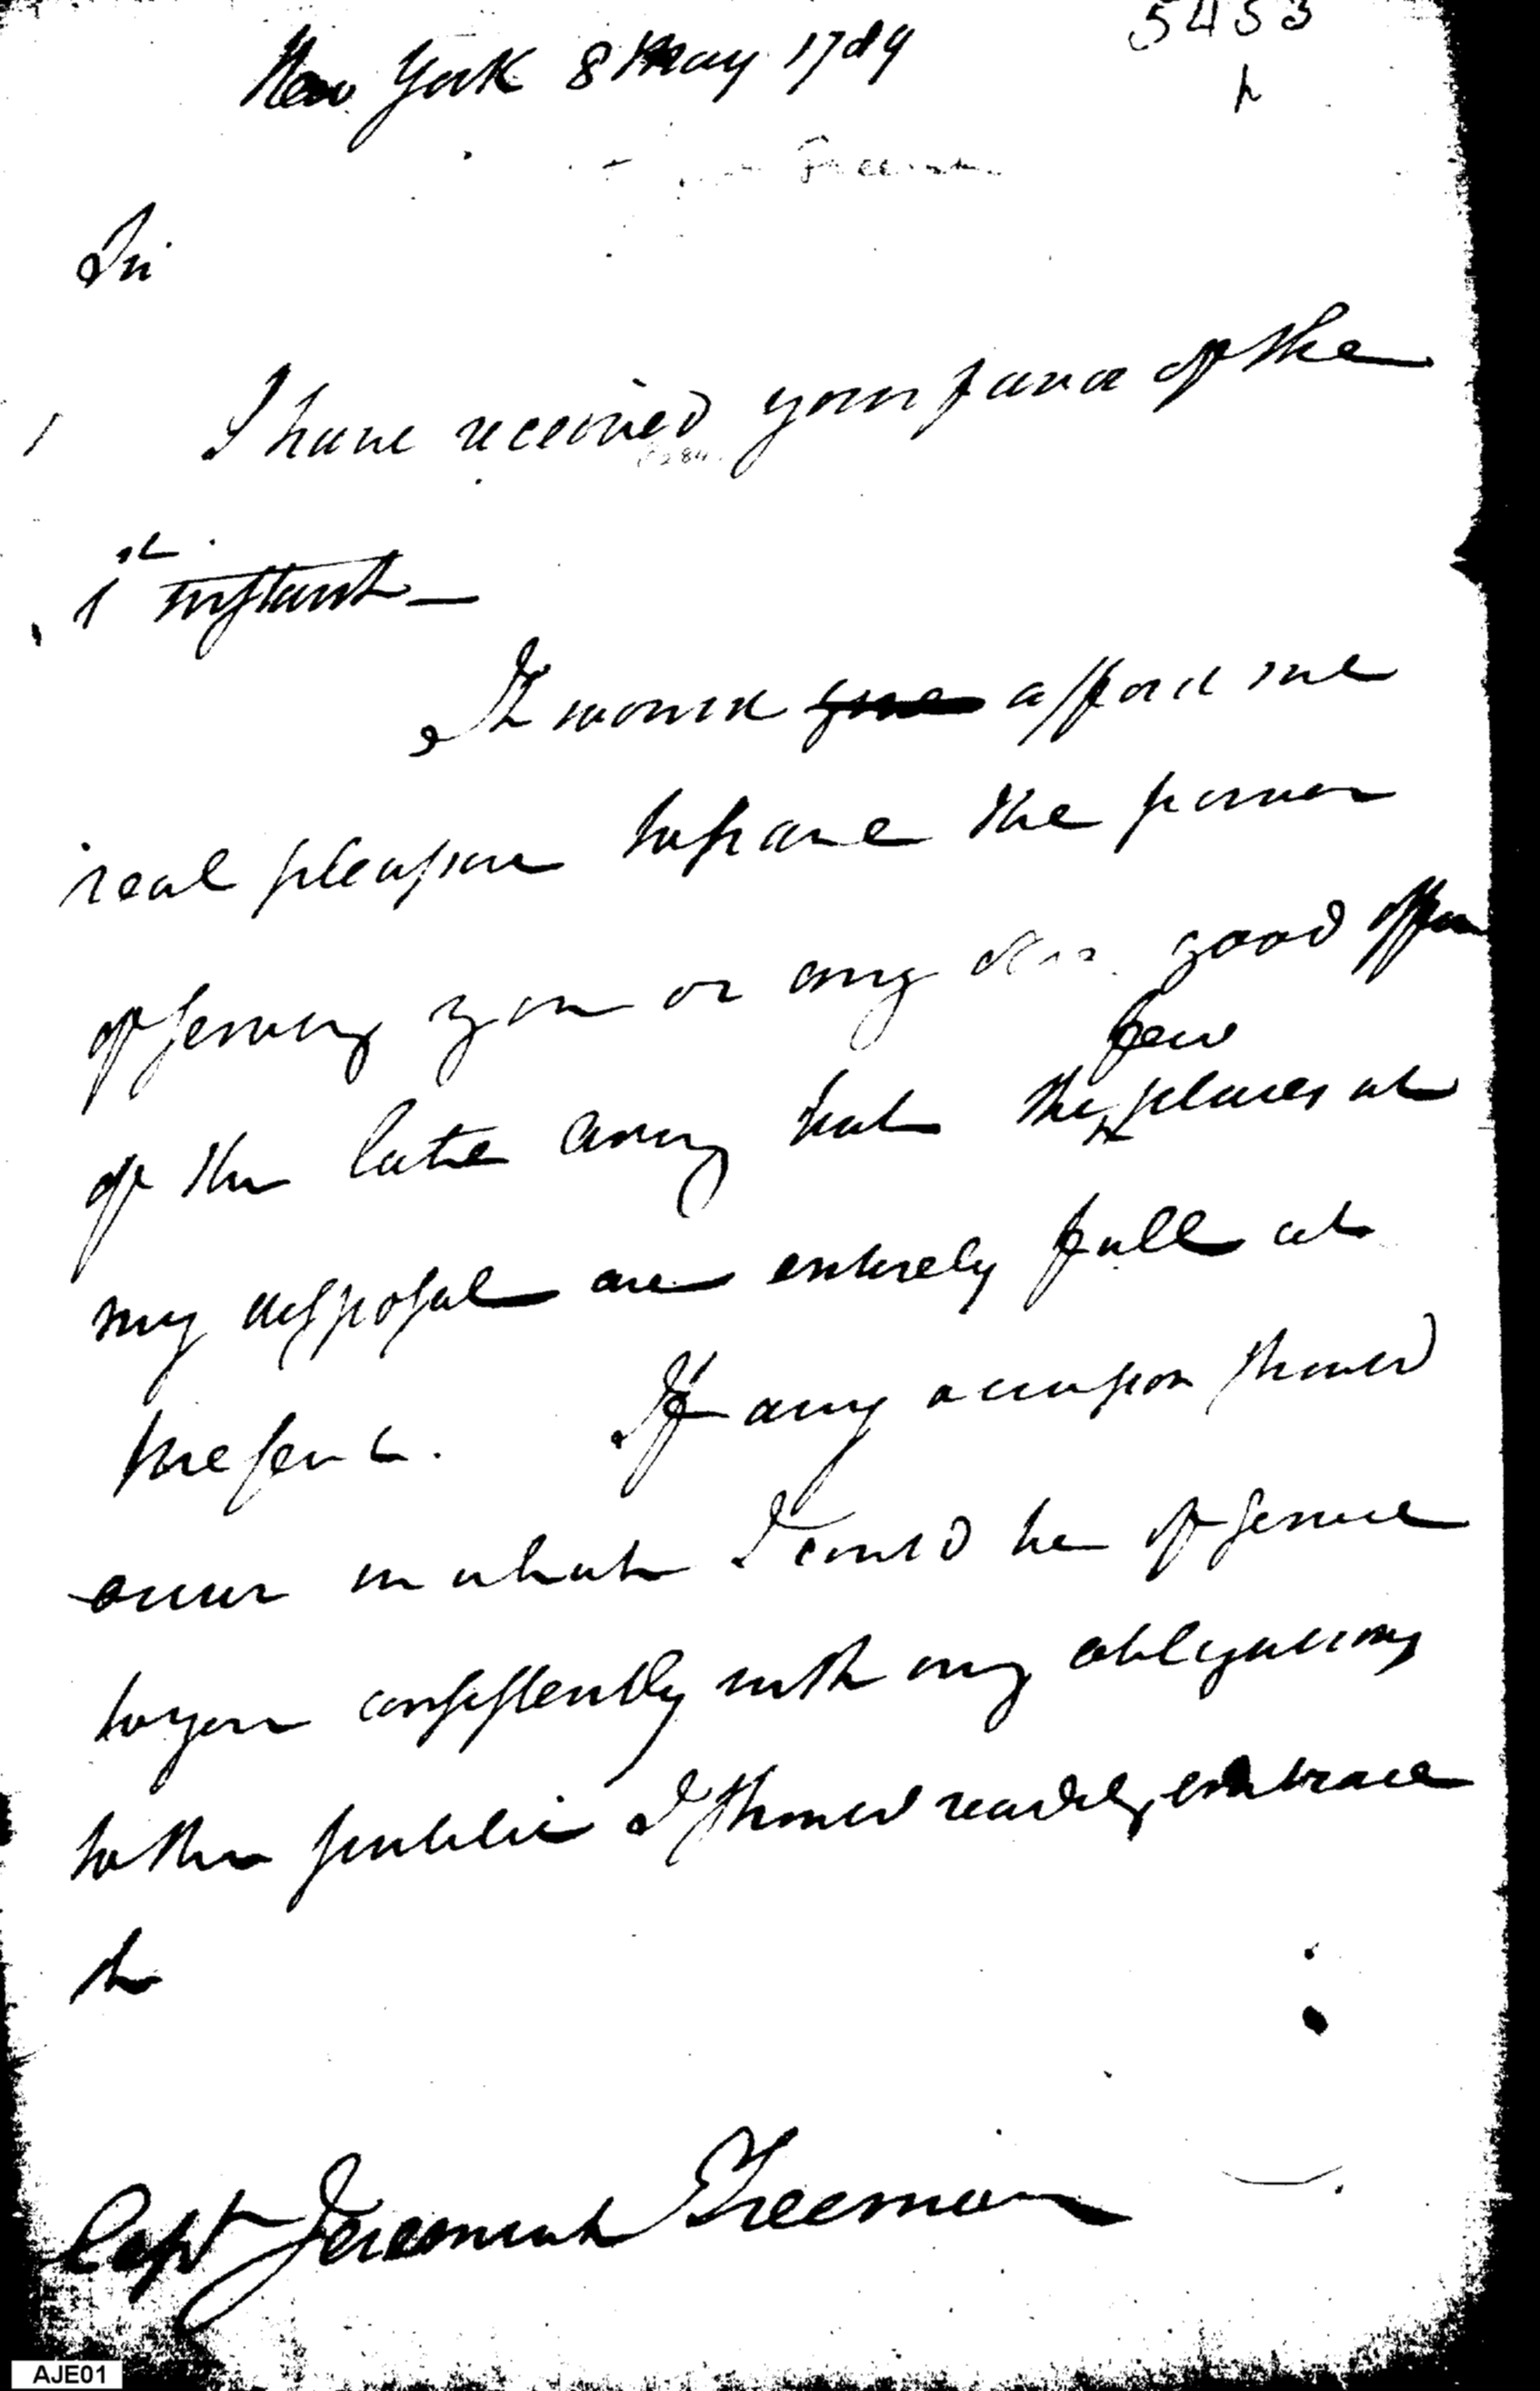 5453
New York 8 May 1789
Freeman
Sir
I have received your favor of the
1st instant —
It would give afford me
real pleasure to have the power
of serving you or any good
of the late army but the few places at
my disposal are entirely full at
present. If any occasion should
occur in which I could be of service
to you consistently with my obligations
to the public I should readily embrace
it
Capt Jeremiah Freeman
AJE01